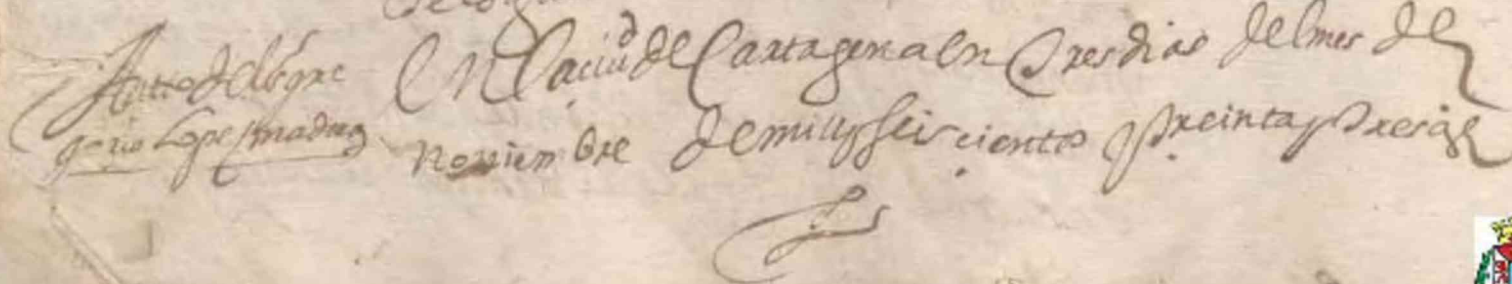 Auto del Sr Gre
gorio Lopez madera
En la ciud de Cartagena en tres dias del mes de
noviembre de mill y seiscientos y treinta y tres as